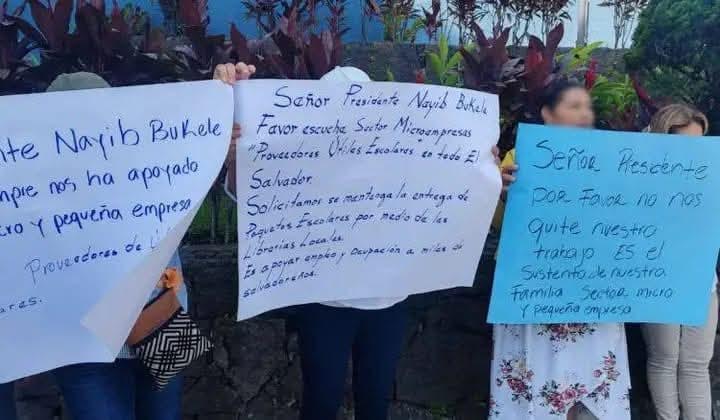 nte Nayib Bukele
mpre nos ha apoyado
cro y pequeña empresa
Proveedores de
ares.
Señor Presidente Nayib Bukele
Favor escuche Sector Microempresas
"Proveedores Útiles Escolares" en todo El
Salvador.
Solicitamos se mantenga la entrega de
Paquetes Escolares por medio de las
Librerias Locales.
Es apoyar empleo y Ocupación a miles de
salvadoreños.
Señor Presidente
por favor no nos
quite nuestro
trabajo ES el
Sustento de nuestra
Familia Sector micro
y pequeña empresa